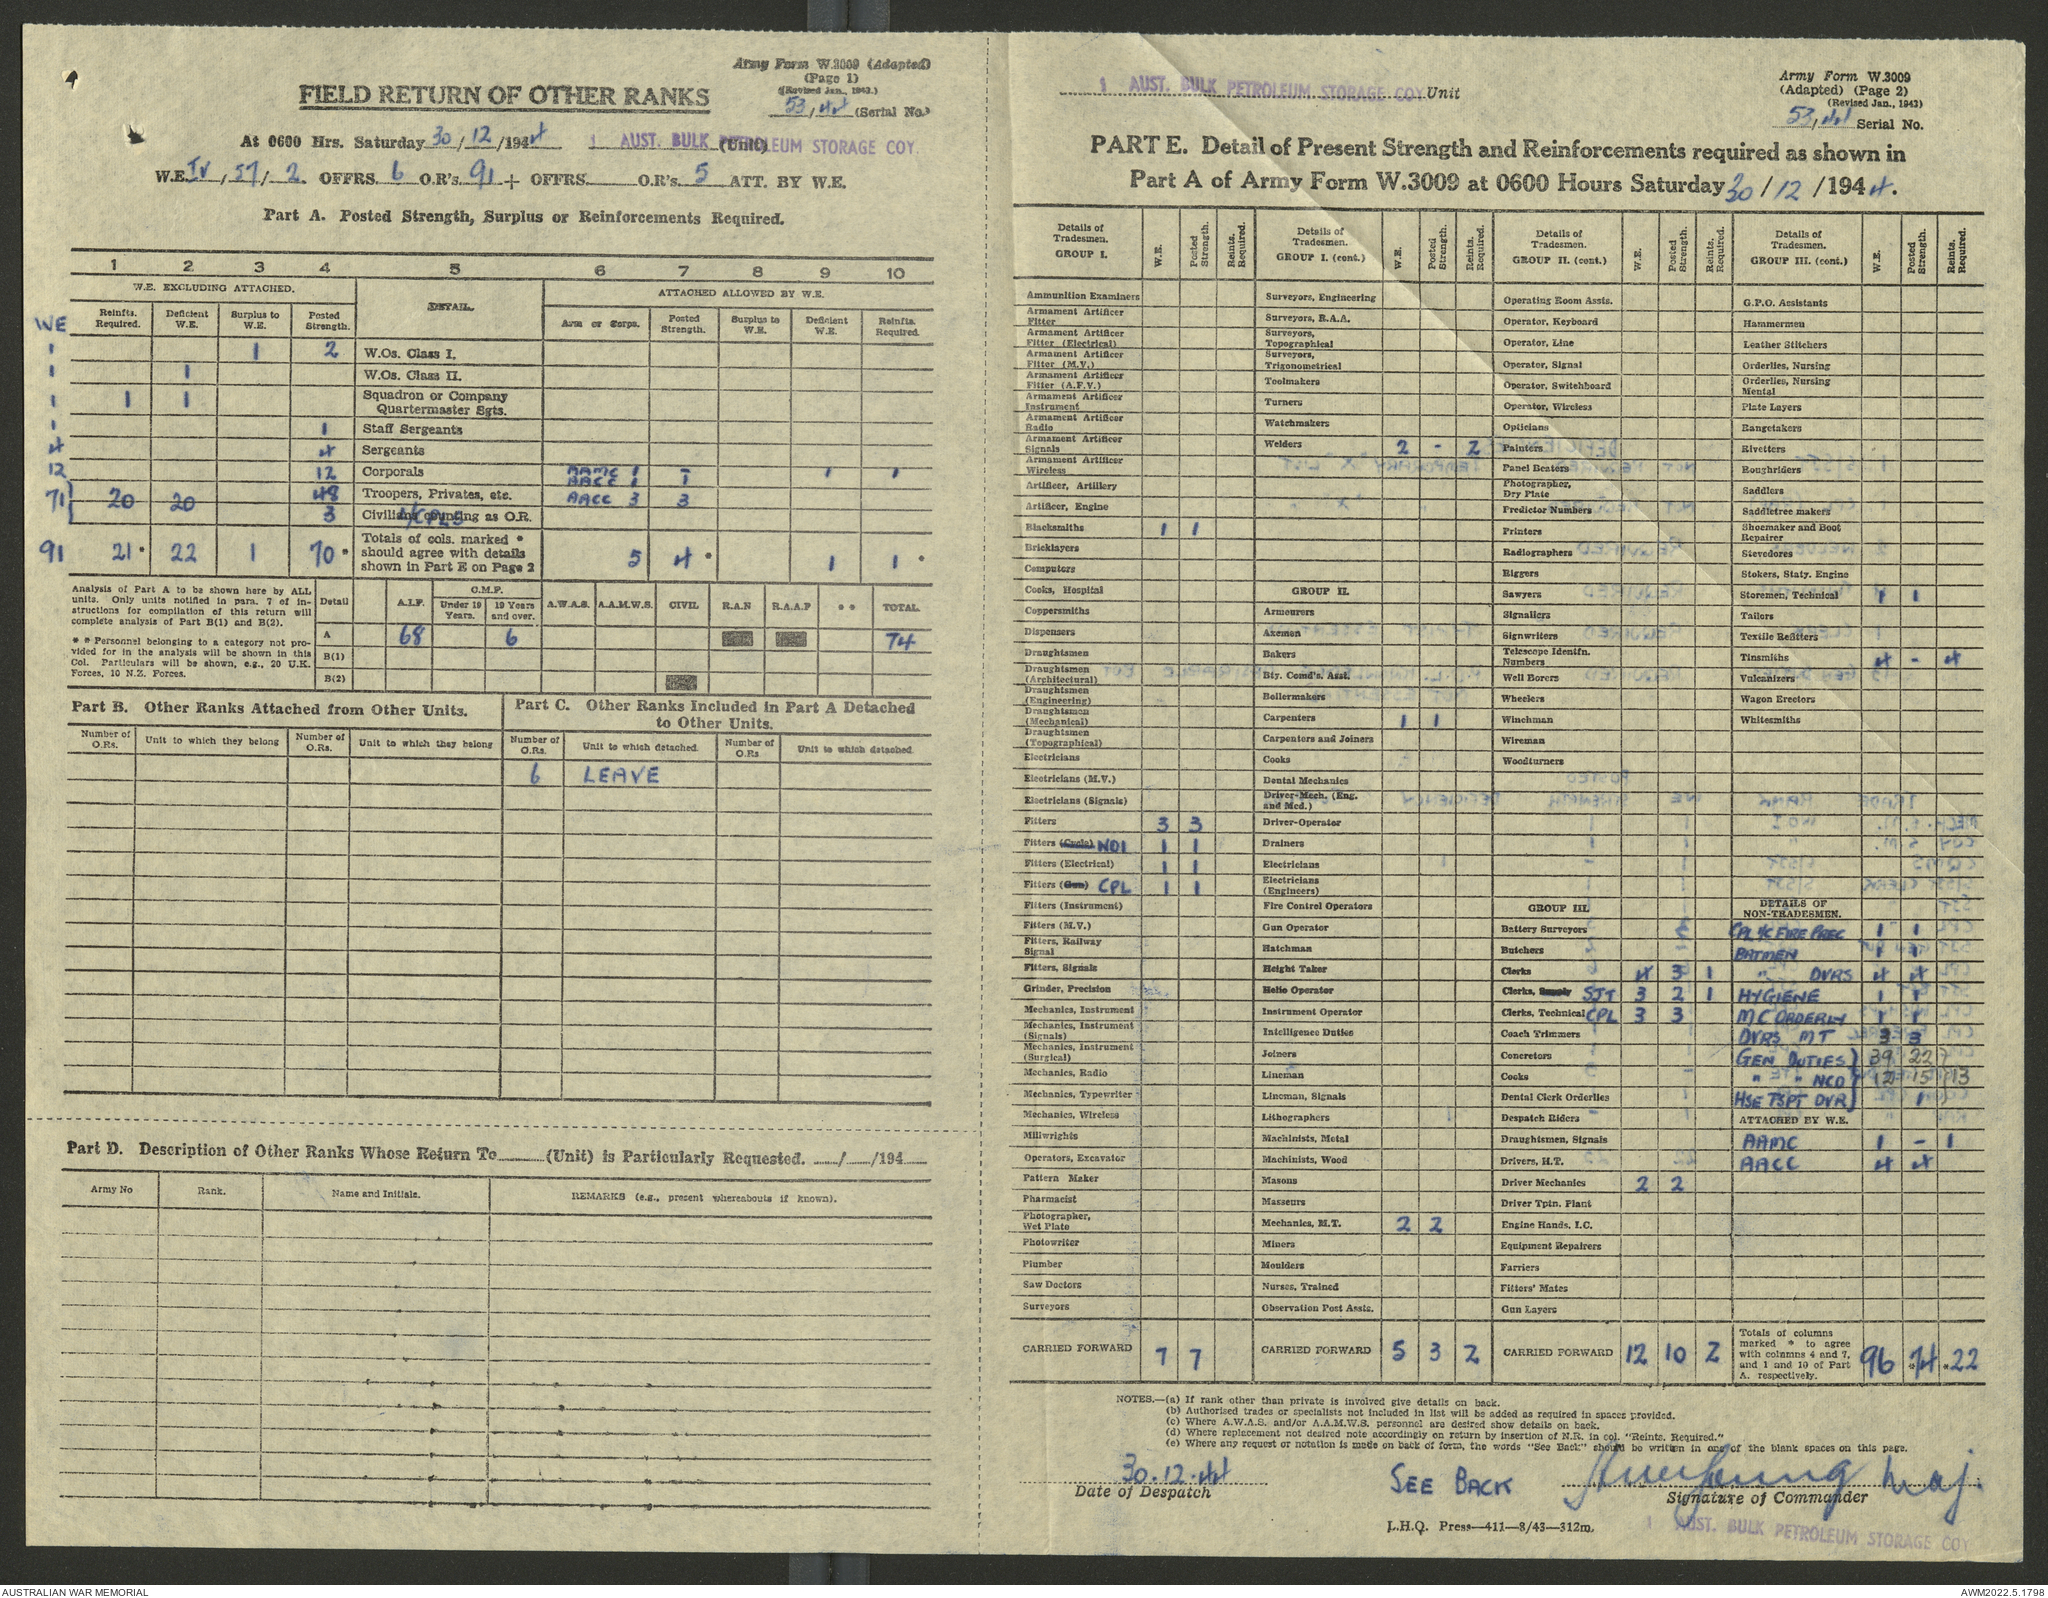 Army Form W.3009 (Adapted)
(Page 1)
(Revised Jan., 1943.)
FIELD RETURN OF OTHER RANKS
53/44 (Serial No.)
At 0600 Hrs. Saturday 30/12/1944 1 AUST. BULK PETROLEUM STORAGE COY. (Unit)
W.E. IV, 57/2 OFFRS. 6 O.R's. 91 + OFFRS. O.R's. 5 ATT. BY W.E.
Part A. Posted Strength, Surplus or Reinforcements Required.
1 2 3 4 5 6 7 8 9 10
W.E. EXCLUDING ATTACHED. DETAIL. ATTACHED ALLOWED BY W.E.
WE Reinfts. Required. Deficient W.E. Surplus to W.E. Posted Strength. Arm or Corps. Posted Strength. Surplus to W.E. Deficient W.E. Reinfts. Required.
1 1 2 W.Os. Class I.
1 1 W.Os. Class II.
1 1 1 Squadron or Company Quartermaster Sgts.
1 1 Staff Sergeants
4 4 Sergeants
12 12 Corporals AAMC 1 - 1 1
AACC 1 1
71 20 20 48 Troopers, Privates, etc. AACC 3 3
3 Civilians counting as O.R. L/CPLS
91 21* 22 1 70* Totals of cols. marked * should agree with details shown in Part E on Page 2 5 4* 1 1*
Analysis of Part A to be shown here by ALL units. Only units notified in para. 7 of instructions for compilation of this return will complete analysis of Part B(1) and B(2).
* * Personnel belonging to a category not provided for in the analysis will be shown in this Col. Particulars will be shown, e.g., 20 U.K. Forces, 10 N.Z. Forces.
Detail A.I.F. C.M.F. Under 19 Years. 19 Years and over. A.W.A.S. A.A.M.W.S. CIVIL R.A.N R.A.A.F * * TOTAL
A 68 6 74
B(1)
B(2)
Part B. Other Ranks Attached from Other Units.
Part C. Other Ranks Included in Part A Detached to Other Units.
Number of O.Rs. Unit to which they belong Number of O.Rs. Unit to which they belong Number of O.Rs. Unit to which detached. Number of O.Rs Unit to which detached.
6 LEAVE
Part D. Description of Other Ranks Whose Return To (Unit) is Particularly Requested. / /194
Army No Rank. Name and Initials. REMARKS (e.g., present whereabouts if known).
1 AUST. BULK PETROLEUM STORAGE COY Unit
Army Form W.3009
(Adapted) (Page 2)
(Revised Jan., 1943)
53/44 Serial No.
PART E. Detail of Present Strength and Reinforcements required as shown in
Part A of Army Form W.3009 at 0600 Hours Saturday 30/12/1944.
Details of Tradesmen. GROUP I. W.E. Posted Strength. Reints. Required.
Ammunition Examiners
Armament Artificer Fitter
Armament Artificer Fitter (Electrical)
Armament Artificer Fitter (M.V.)
Armament Artificer Fitter (A.F.V.)
Armament Artificer Instrument
Armament Artificer Radio
Armament Artificer Signals
Armament Artificer Wireless
Artificer, Artillery
Artificer, Engine
Blacksmiths 1 1
Bricklayers
Computers
Cooks, Hospital
Coppersmiths
Dispensers
Draughtsmen
Draughtsmen (Architectural)
Draughtsmen (Engineering)
Draughtsmen (Mechanical)
Draughtsmen (Topographical)
Electricians
Electricians (M.V.)
Electricians (Signals)
Fitters 3 3
Fitters (Cycle) WO1 1 1
Fitters (Electrical) 1 1
Fitters (Gun) CPL 1 1
Fitters (Instrument)
Fitters (M.V.)
Fitters, Railway Signal
Fitters, Signals
Grinder, Precision
Mechanics, Instrument
Mechanics, Instrument (Signals)
Mechanics, Instrument (Surgical)
Mechanics, Radio
Mechanics, Typewriter
Mechanics, Wireless
Millwrights
Operators, Excavator
Pattern Maker
Pharmacist
Photographer, Wet Plate
Photowriter
Plumber
Saw Doctors
Surveyors
CARRIED FORWARD 7 7
Details of Tradesmen. GROUP I. (cont.) W.E. Posted Strength. Reints. Required.
Surveyors, Engineering
Surveyors, R.A.A.
Surveyors, Topographical
Surveyors, Trigonometrical
Toolmakers
Turners
Watchmakers
Welders 2 - 2
GROUP II.
Armourers
Axemen
Bakers
Bty. Comd's. Asst.
Boilermakers
Carpenters 1 1
Carpenters and Joiners
Cooks
Dental Mechanics
Driver-Mech. (Eng. and Med.)
Driver-Operator
Drainers
Electricians
Electricians (Engineers)
Fire Control Operators
Gun Operator
Hatchman
Height Taker
Helio Operator
Instrument Operator
Intelligence Duties
Joiners
Lineman
Lineman, Signals
Lithographers
Machinists, Metal
Machinists, Wood
Masons
Masseurs
Mechanics, M.T. 2 2
Miners
Moulders
Nurses, Trained
Observation Post Assts.
CARRIED FORWARD 5 3 2
Details of Tradesmen. GROUP II. (cont.) W.E. Posted Strength. Reints. Required.
Operating Room Assts.
Operator, Keyboard
Operator, Line
Operator, Signal
Operator, Switchboard
Operator, Wireless
Opticians
Painters
Panel Beaters
Photographer, Dry Plate
Predictor Numbers
Printers
Radiographers
Riggers
Sawyers
Signallers
Signwriters
Telescope Identfn. Numbers
Well Borers
Wheelers
Winchman
Wireman
Woodturners
GROUP III.
Battery Surveyors
Butchers
Clerks 4 3 1
Clerks, Supply SJT 3 2 1
Clerks, Technical CPL 3 3
Coach Trimmers
Concretors
Cooks
Dental Clerk Orderlies
Despatch Riders
Draughtsmen, Signals
Drivers, H.T.
Driver Mechanics 2 2
Driver Tptn. Plant
Engine Hands, I.C.
Equipment Repairers
Farriers
Fitters' Mates
Gun Layers
CARRIED FORWARD 12 10 2
Details of Tradesmen. GROUP III. (cont.) W.E. Posted Strength. Reints. Required.
G.P.O. Assistants
Hammermen
Leather Stitchers
Orderlies, Nursing
Orderlies, Nursing Mental
Plate Layers
Rangetakers
Rivetters
Roughriders
Saddlers
Saddletree makers
Shoemaker and Boot Repairer
Stevedores
Stokers, Staty. Engine
Storemen, Technical 1 1
Tailors
Textile Refitters
Tinsmiths 4 - 4
Vulcanizers
Wagon Erectors
Whitesmiths
DETAILS OF NON-TRADESMEN.
CPL I/C FIRE PREC 1 1
BATMEN 1 1
" DVRS 4 4
HYGIENE 1 1
MC ORDERLY 1 1
DVRS MT 3 3
GEN DUTIES 39 22
" " NCO 12 15 13
HSE TSPT DVR 1
ATTACHED BY W.E.
AAMC 1 - 1
AACC 4 4
Totals of columns marked * to agree with columns 4 and 7, and 1 and 10 of Part A. respectively. 96 *74 *22
NOTES.—(a) If rank other than private is involved give details on back.
(b) Authorised trades or specialists not included in list will be added as required in spaces provided.
(c) Where A.W.A.S. and/or A.A.M.W.S. personnel are desired show details on back.
(d) Where replacement not desired note accordingly on return by insertion of N.R. in col. "Reints. Required."
(e) Where any request or notation is made on back of form, the words "See Back" should be written in one of the blank spaces on this page.
30.12.44 SEE BACK Maj.
Date of Despatch Signature of Commander
L.H.Q. Press—411—8/43—312m.
1 AUST. BULK PETROLEUM STORAGE COY
AUSTRALIAN WAR MEMORIAL AWM2022.5.1798